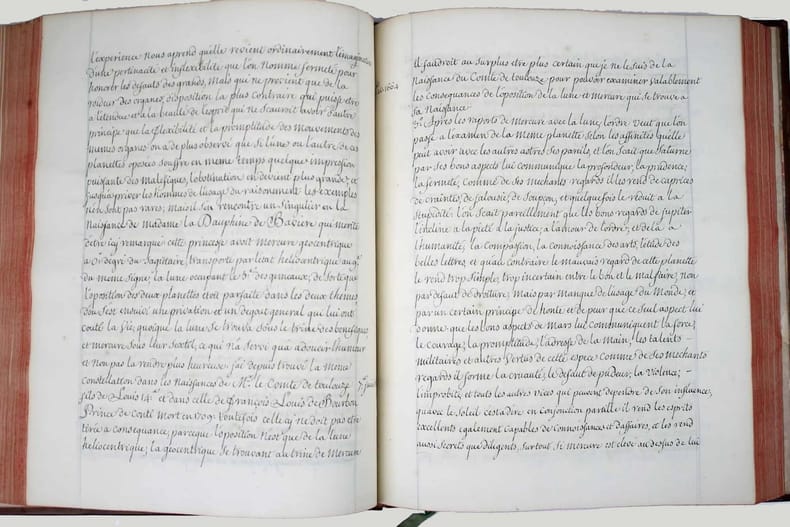 l'experience nous aprend qu'elle revient ordinairement l'imagination
d'une pertinacité et inflexibilité que l'on nomme fermeté pour
honorer les defauts des grands, mais qui ne provient que de la
roideur des organes, disposition la plus contraire qui puisse etre
a l'etendüe et a la beauté de l'esprit qui ne scauroit avoir d'autre
principe que la flexibilité et la promptitude des mouvements des
memes organes on a de plus observé que si l'une ou l'autre de ces
planettes oposées souffre en meme temps quelque impression
puissante des malefiques, l'obstination en devient plus grande, et
jusqu'a priver les hommes de l'usage du raisonnement les exemples
n'en sont pas rares; mais il s'en rencontre un singulier en la
Naissance de madame la Dauphine de Baviere qui merite
d'etre icy remarqué cette princesse avoit Mercure geocentrique
a 0 degré du Sagittaire, transporté par l'etat heliocentrique au 9e.
du meme signe, la lune occupant le 3e. des gemeaux, de sorte que
l'oposition des deux planettes etoit parfaite dans les deux themes
d'ou s'est ensuivi une privation et un degout general qui lui ont
couté la vie; quoique la lune se trouva sous le trine des benefiques,
et mercure sous leur sextil, ce qui n'a servi qu'a adoucir l'humeur
et non pas la rendre plus heureuse. j'ai depuis trouvé la meme
constellation dans les naissances de Mr. le Comte de toulouze
fils de Louis 14e. et dans celle de François Louis de Bourbon
Prince de conti mort en 1709. toutefois celle cy ne doit pas etre
tirée a consequance, parceque l'oposition n'est que de la lune
heliocentrique, la geocentrique se trouvant au trine de Mercure
1664
Il faudroit au surplus etre plus certain que je ne le suis de la
Naissance du Comte de toulouze pour pouvoir examiner valablement
les Consequances de l'oposition de la lune et mercure qui se trouve a
sa Naissance
3e. Après les raports de mercure avec la lune, l'ordre veut que l'on
passe a l'examen de la meme planette selon les affinités qu'elle
peut avoir avec les autres astres ses pareils, et l'on scait que saturne
par ses bons aspects lui communique la profondeur, la prudence,
la fermeté, Comme de ses mechants regards il les rend de caprices
de craintes, de jalousie, de soupçon, et quelquefois le reduit a la
stupidité. l'on scait pareillement que les bons regards de jupiter
l'incline a la pieté, a la justice, a l'amour de l'ordre, et de là a
l'humanité, la compassion, la connoissance des arts, l'etude des
belles lettres, et qu'au contraire le mauvais regard de cette planette
le rend trop simple, trop incertain entre le bon et le mal faire, non
par defaut de droiture, mais par manque de l'usage du Monde, et
par un certain principe de honte et de peur que ce seul aspect lui
donne que les bons aspects de Mars lui communiquent la force,
le courage, la promptitude, l'adresse de la Main, les talents
militaires et autres vertus de cette espece Comme de ses mechants
regards il forme la cruauté, le defaut de pudeur, la violence,
l'improbité, et touts les autres vices qui peuvent dependre de son influence,
qu'avec le Soleil c'est a dire en Conjonction partille il rend les esprits
excellents egalement capables de connoissances et d'affaires, et les rend
aussi secrets que diligents, surtout, si mercure est elevé au dessus de lui